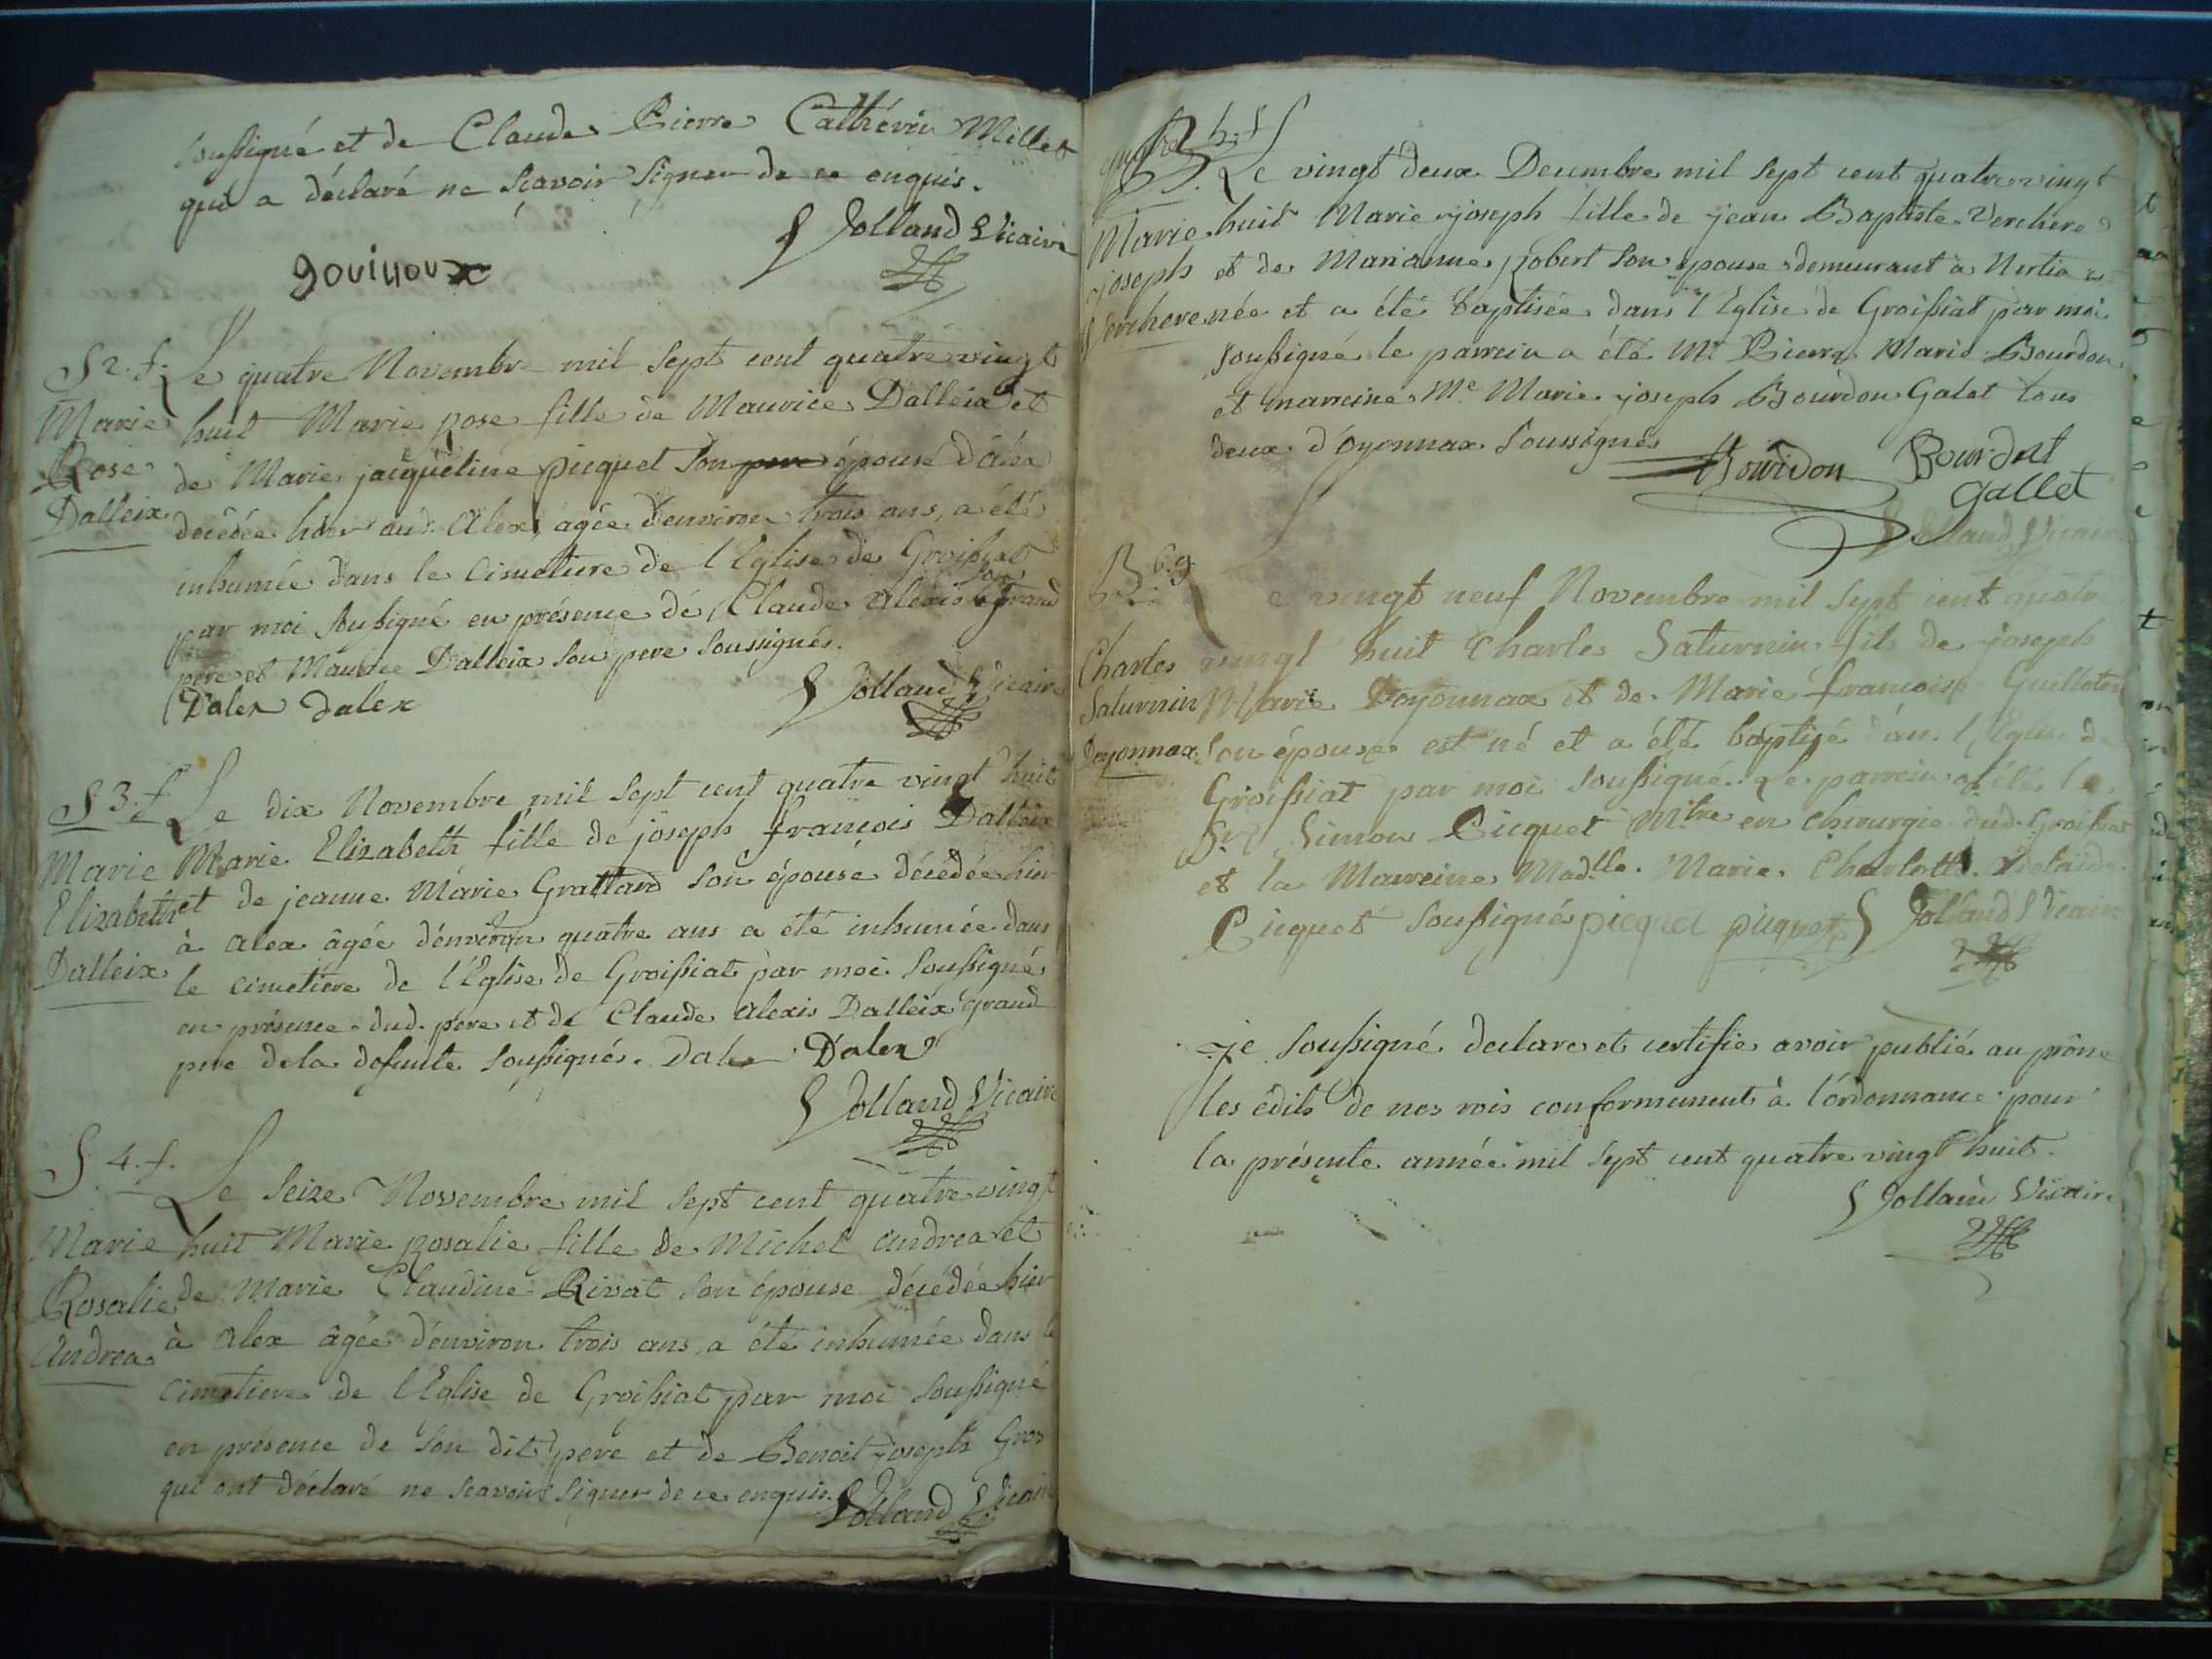 soussigné et de Claude Pierre Cathérin Millet
qui a déclaré ne scavoir signer de ce enquis.
Jolland Vicaire
gouilloux
S 2. f.
Marie
Rose
Dalleix
Le quatre Novembre mil sept cent quatre vingt
huit Marie rose fille de Maurice Dalleix et
de Marie jacqueline picquet son épouse d'alex
décédée hier aud. Alex, agée d'environ trois ans, a été
inhumée dans le cimetiere de l'Eglise de Groissiat
par moi soussigné en présence de Claude Alexis son grand
pere et Maurice Dalleix son pere soussignés.
Dalex dalex
Jolland Vicaire
S 3. f
Marie
Elizabeth
Dalleix
Le dix Novembre mil sept cent quatre vingt huit
Marie Elizabeth fille de joseph françois Dalleix
et de jeanne Marie Grattard son épouse décédée hier
à alex âgée d'environ quatre ans a été inhumée dans
le cimetiere de l'Eglise de Groissiat par moi soussigné
en présence dud. pere et de Claude Alexis Dalleix grand
pere dela defunte soussignés. Dalex Dalex
Jolland Vicaire
S. 4. f.
Marie
Rosalie
Andrea
Le seize Novembre mil sept cent quatre vingt
huit Marie rosalie fille de Michel andrea et
de Marie Claudine Rivat son épouse décédée hier
à alex âgée d'environ trois ans a été inhumée dans le
cimetiere de l'Eglise de Groissiat par moi soussigné
en présence de son dit pere et de Benoit joseph Gros
qui ont déclaré ne scavoir signer de ce enquis.
Jolland Vicaire
Marie
joseph
Verchere
Le vingt deux Decembre mil sept cent quatre vingt
huit Marie joseph fille de jean Baptiste Verchere
et de Marianne robert son épouse demeurant à Nertia est
née et a été baptisée dans l'Eglise de Groissiat par moi
soussigné le parrein a été Mr. Pierre Marie Bourdon
et marreine Me. Marie joseph Bourdon Galet tous
deux d'oyonnax soussignés
Bourdon Bourdon
gallet
Jolland Vicaire
B 6. g.
Charles
Saturnin
Doyonnax
Le vingt neuf Novembre mil sept cent quatre
vingt huit Charles Saturnin fils de joseph
Marie Doyonnax et de Marie françoise Guilloton
son épouse est né et a été baptisé dans l'Eglise de
Groissiat par moi soussigné. Le parrein a été le
Sr. Simon Picquet Mtre en chirurgie dud. Groissiat
et la Marreine Madlle. Marie Charlotte Adelaïde
Picquet soussignés picquet picquet Jolland Vicaire
je soussigné declare et certifie avoir publié au prône
les édits de nos rois conformement à l'ordonnance pour
la présente année mil sept cent quatre vingt huit.
Jolland Vicaire